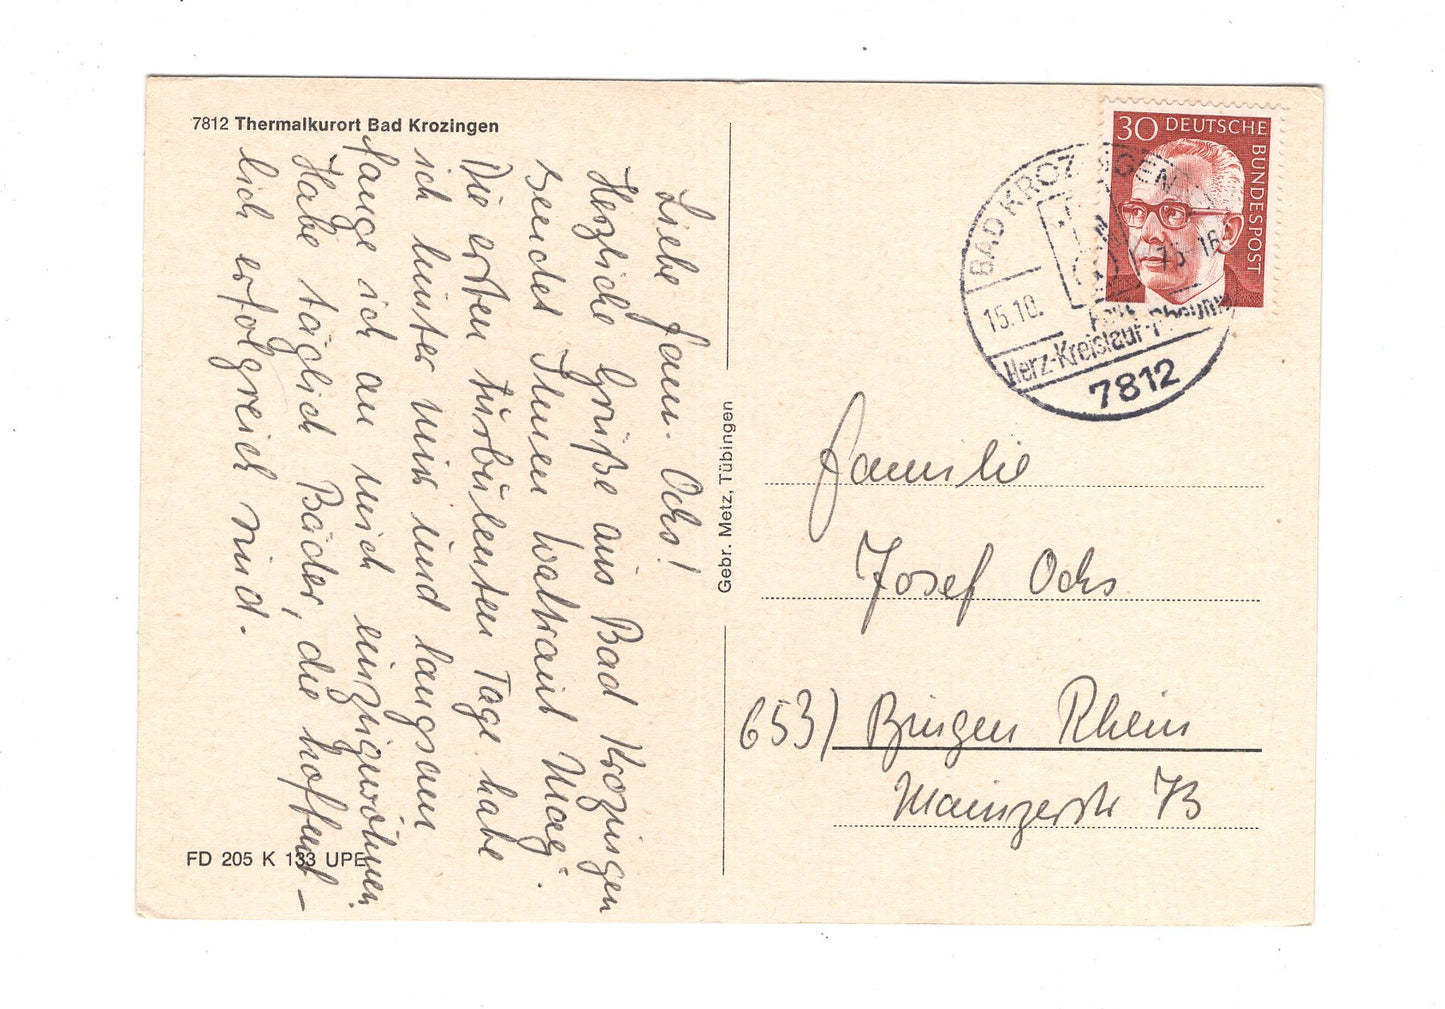 7812 Thermalkurort Bad Krozingen
Liebe Fam. Ochs!
Herzliche Grüße aus Bad Krozingen
sendet Ihnen Waltraut May.
Die ersten turbulenten Tage habe
ich hinter mir und langsam
fange ich an mich einzugewöhnen.
Habe täglich Bäder, die hoffent-
lich erfolgreich sind.
FD 205 K 133 UPE
Gebr. Metz, Tübingen
30 DEUTSCHE BUNDESPOST
BAD KROZINGEN
15.10. 16
Herz-Kreislauf-Rheuma
7812
Familie
Josef Ochs
653) Bingen Rhein
Mainzerstr 73